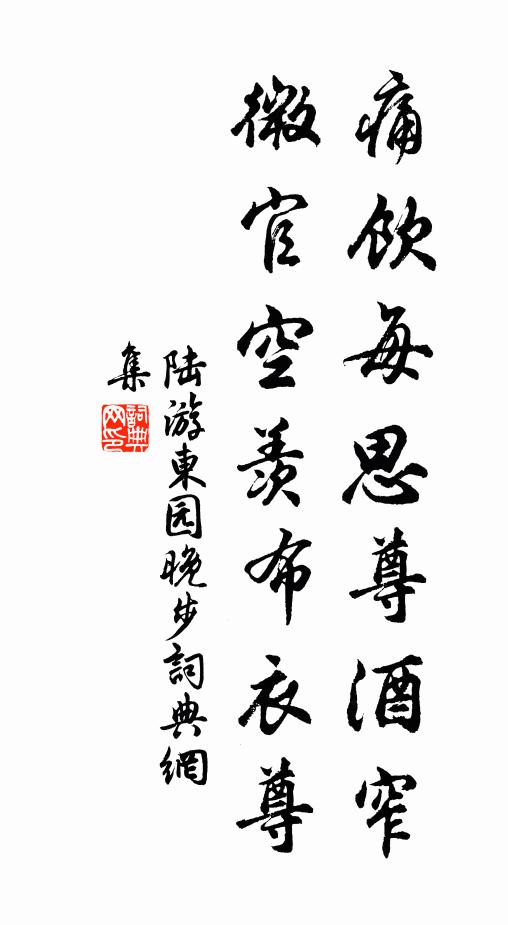 痛飲每思尊酒窄
微官空羨布衣尊
陆游東园晚步詞典網
集
詞典网印